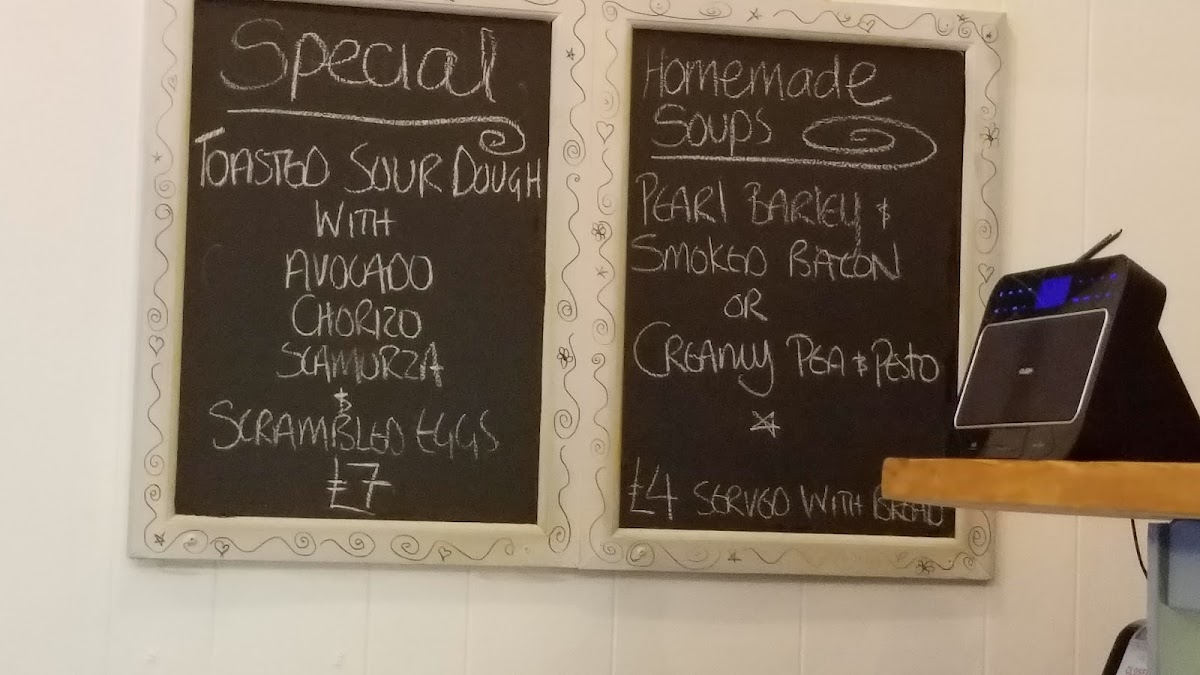 Special
TOASTED SOUR DOUGH
WITH
AVOCADO
CHORIZO
SCAMURZA
&
SCRAMBLED EGGS
£7
Homemade
Soups
PEARL BARLEY &
SMOKED BACON
OR
CREAMY PEA & PESTO
£4 SERVED WITH BREAD